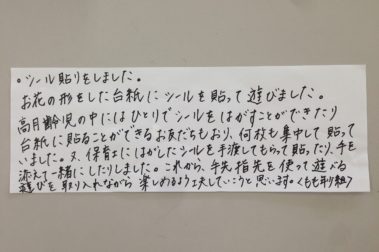 ○シール貼りをしました。
お花の形をした台紙にシールを貼って遊びました。
高月齢児の中にはひとりでシールをはがすことができたり
台紙に貼ることができるお友だちもおり、何枚も集中して貼って
いました。又、保育士にはがしたシールを手渡してもらって貼ったり、手を
添えて一緒にしたりしました。これから、手先指先を使って遊べる
遊びを取り入れながら楽しめるよう工夫していこうと思います。〈もも取り組〉